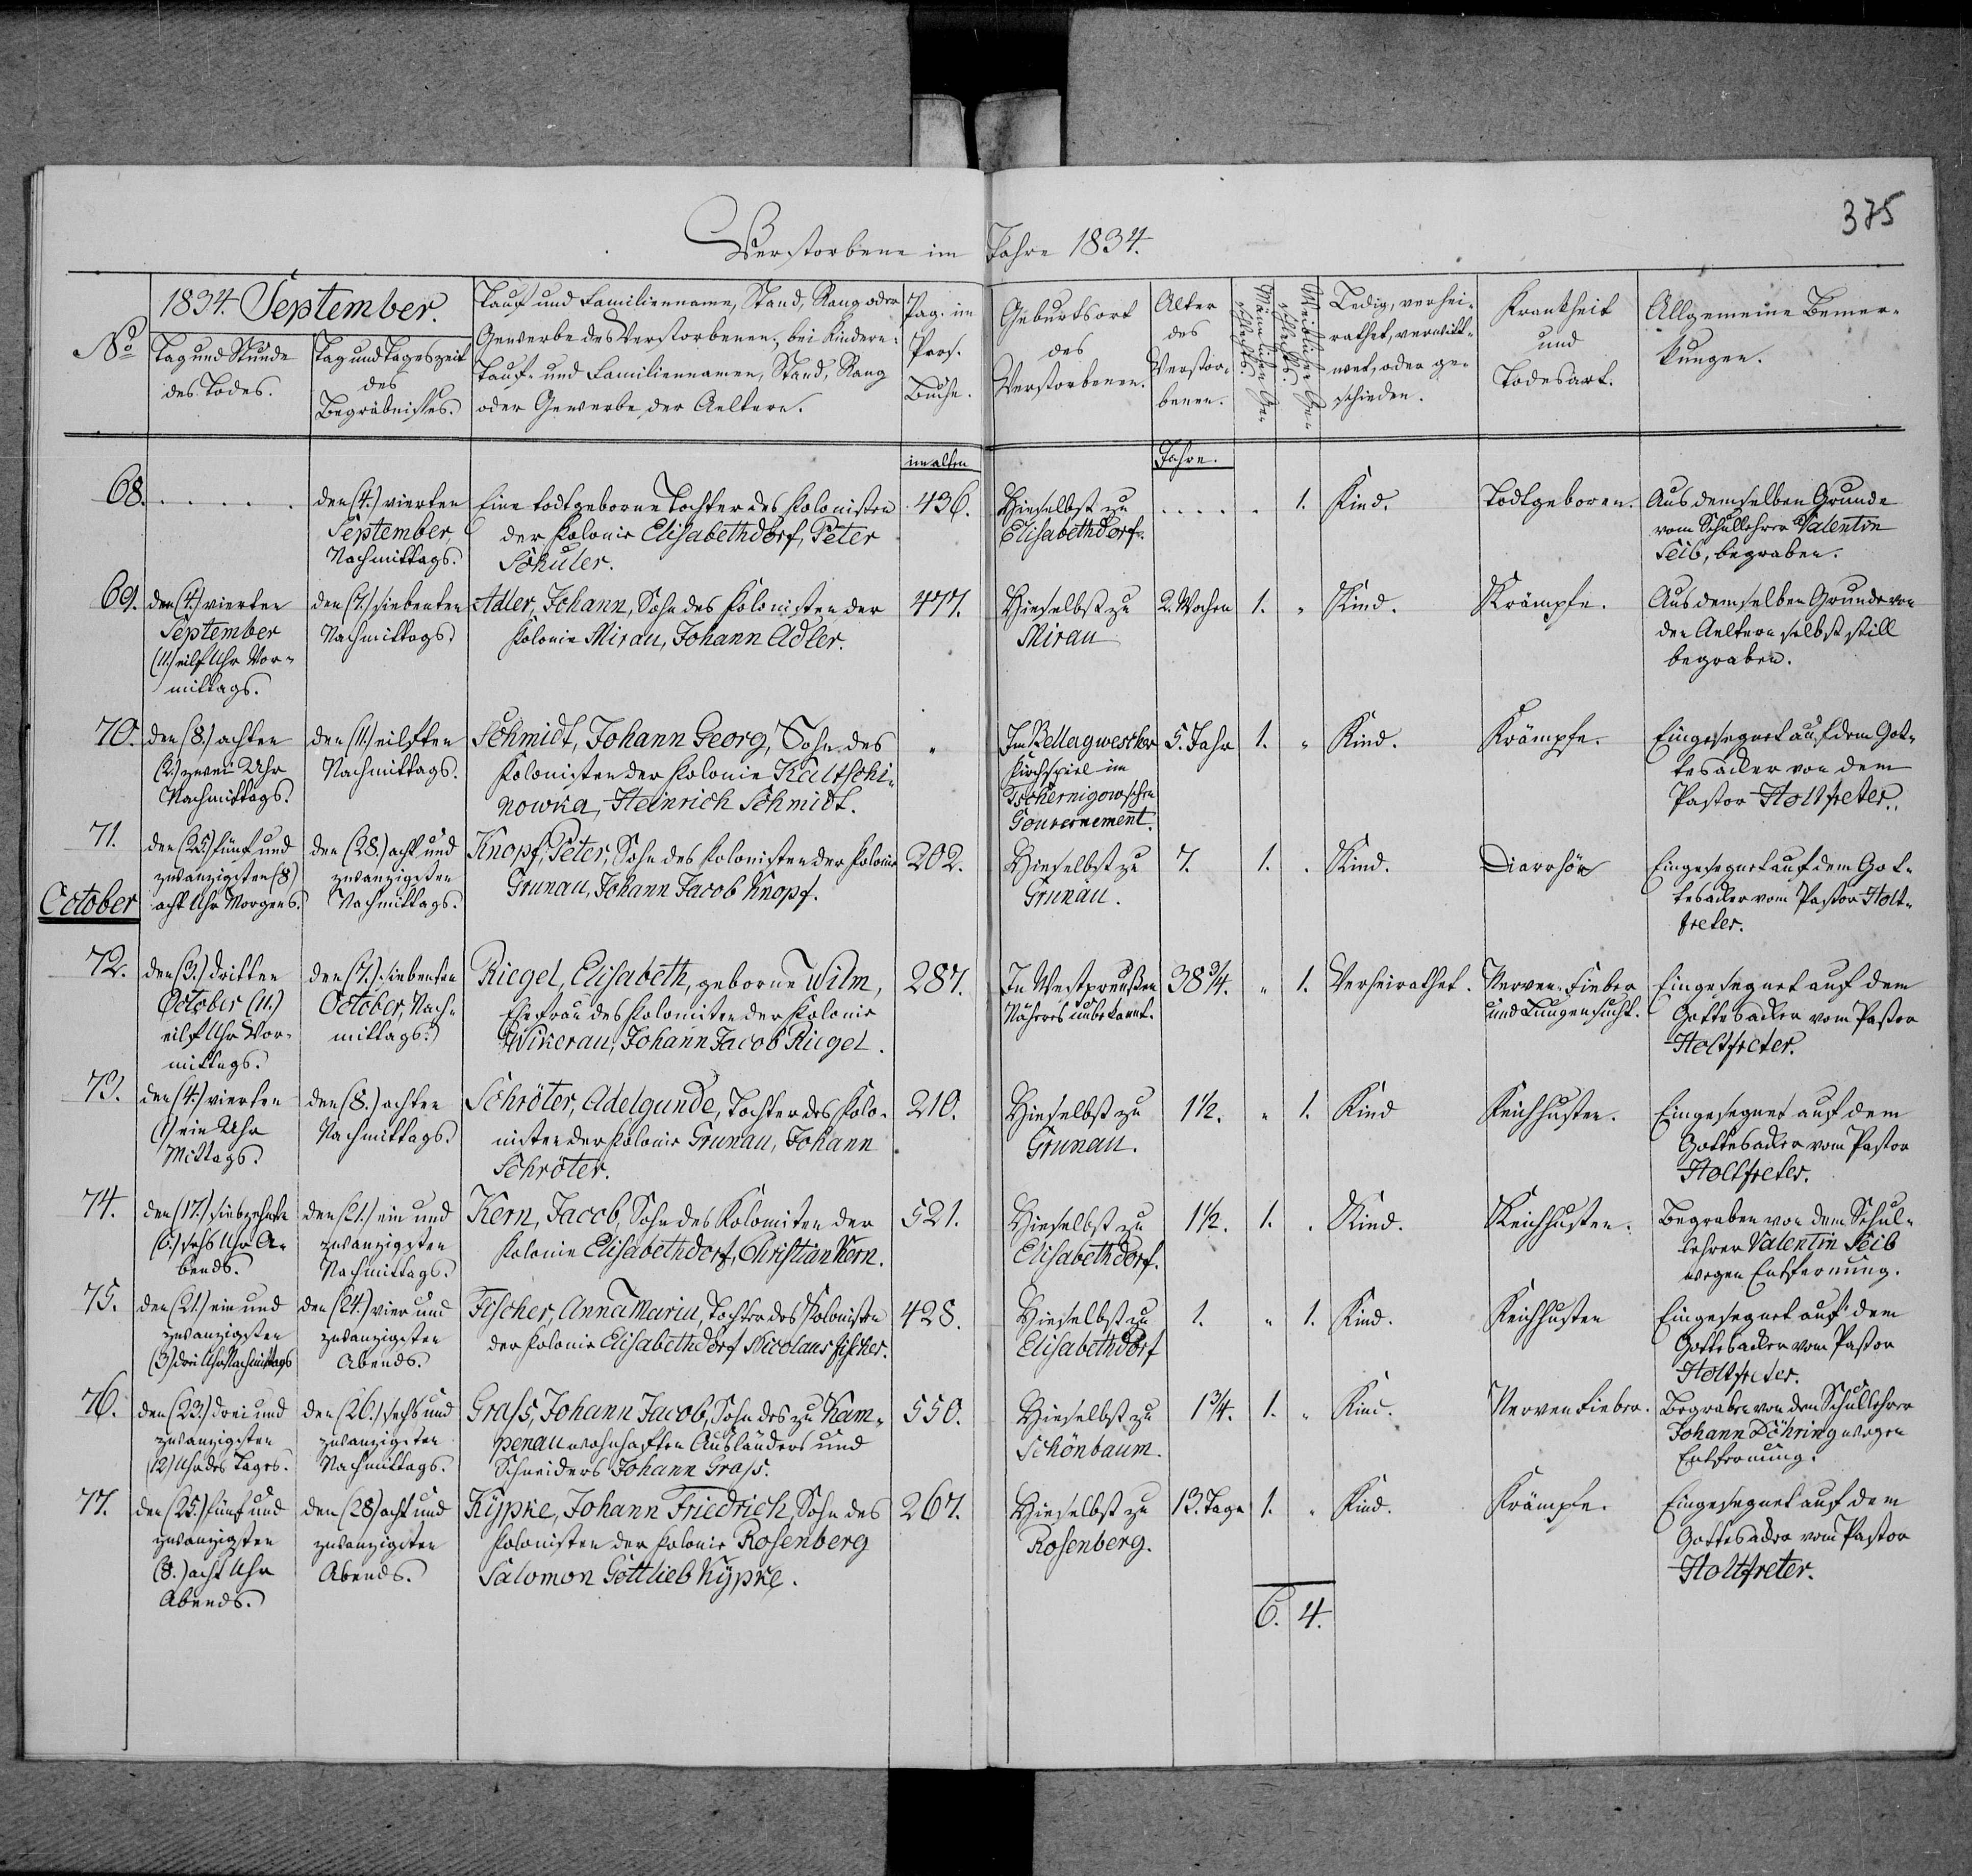 375
Verstorbene im Jahre 1834.
No
1834. September.
Tag und Stunde
des Todes.
Tag und Tageszeit
des
Begräbnisses.
Tauf und Familienname, Stand, Rang oder
Gewerbe des Verstorbenen, bei Kindern:
Tauf- und Familiennamen, Stand, Rang
oder Gewerbe der Aeltern.
Pag. im
Pers.
Buche.
Geburtsort
des
Verstorbenen.
Alter
des
Verstor-
benen.
Männlichen Ge-
schlechts.
Weiblichen Ge-
schlechts.
Ledig, verhei-
rathet, verwitt-
wet, oder ge-
schieden.
Krankheit
und
Todesart.
Allgemeine Bemer-
kungen.
im alten
Jahre.
68. . . . . .
den (4.) vierten
September,
Nachmittags.
Eine todtgeborne Tochter des Kolonisten
der Kolonie Elisabethdorf, Peter
Schuler.
436.
Hieselbst zu
Elisabethdorf.
. . . . .
1.
Kind.
Todtgeboren.
Aus demselben Grunde
vom Schullehrer Valentin
Seib, begraben.
69.
den (4.) vierten
September
(11.) eilf Uhr Vor-
mittags.
den (7.) siebenten
Nachmittags.
Adler, Johann, Sohn des Kolonisten der
Kolonie Mirau, Johann Adler.
477.
Hieselbst zu
Mirau
2. Wochen
1.
"
Kind.
Krämpfe.
Aus demselben Grunde von
den Aeltern selbst still
begraben.
70.
den (8.) achten
(2.) zwei Uhr
Nachmittags.
den (11.) eilften
Nachmittags.
Schmidt, Johann Georg, Sohn des
Kolonisten der Kolonie Kaltschi-
nowka, Heinrich Schmidt.
"
Im Bellagweschen
Kirchspiel im
Tschernigowschen
Gouvernement.
5. Jahr
1.
"
Kind.
Krämpfe.
Eingesegnet auf dem Got-
tesacker von dem
Pastor Holtfreter.
71.
den (25.) fünf und
zwanzigsten (8)
acht Uhr Morgens.
den (28.) acht und
zwanzigsten
Nachmittags.
Knopf, Peter, Sohn des Kolonisten der Kolonie
Grunau, Johann Jacob Knopf.
202.
Hieselbst zu
Grunau.
7.
1.
.
Kind.
Diarrhöe
Eingesegnet auf dem Got-
tesacker vom Pastor Holt-
freter.
October
72.
den (3.) dritten
October (11.)
eilf Uhr Vor-
mittags.
den (7.) siebenten
October, Nach-
mittags.
Riegel, Elisabeth, geborne Wilm,
Ehefrau des Kolonisten der Kolonie
Wikerau, Johann Jacob Riegel.
287.
In Westpreußen
Näheres unbekannt.
38¾.
"
1.
Verheirathet.
Nerven-Fieber
und Lungensucht.
Eingesegnet auf dem
Gottesacker vom Pastor
Holtfreter.
73.
den (4.) vierten
(1) ein Uhr
Mittags.
den (8.) achten
Nachmittags.
Schröter, Adelgunde, Tochter des Kolo-
nisten der Kolonie Grunau, Johann
Schröter.
210.
Hieselbst zu
Grunau.
1½.
"
1.
Kind
Keichhusten.
Eingesegnet auf dem
Gottesacker vom Pastor
Holtfreter.
74.
den (17.) siebzehnten
(6.) sechs Uhr A-
bends.
den (21.) ein und
zwanzigsten
Nachmittags.
Kern, Jacob, Sohn des Kolonisten der
Kolonie Elisabethdorf, Christian Kern.
521.
Hieselbst zu
Elisabethdorf.
1½.
1.
.
Kind.
Keichhusten.
Begraben von dem Schul-
lehrer Valentin Seib
wegen Entfernung.
75.
den (21.) ein und
zwanzigsten
(3) drei Uhr Nachmittags
den (24.) vier und
zwanzigsten
Abends.
Fischer, Anna Maria, Tochter des Kolonisten
der Kolonie Elisabethdorf Nicolaus Fischer.
428.
Hieselbst zu
Elisabethdorf
1.
"
1.
Kind.
Keichhusten
Eingesegnet auf dem
Gottesacker vom Pastor
Holtfreter.
76.
den (23.) drei und
zwanzigsten
(12) Uhr des Tages.
den (26.) sechs und
zwanzigsten
Nachmittags.
Grass, Johann Jacob, Sohn des zu Kam-
penau wohnhaften Ausländers und
Schneiders Johann Grass.
550.
Hieselbst zu
Schönbaum.
1¾.
1.
"
Kind.
Nerven Fieber.
Begraben von dem Schullehrer
Johann Döhring wegen
Entfernung.
77.
den (25.) fünf und
zwanzigsten
(8.) acht Uhr
Abends.
den (28) acht und
zwanzigsten
Abends.
Kÿpke, Johann Friedrich, Sohn des
Kolonisten der Kolonie Rosenberg
Salomon Gottlieb Kÿpke.
267.
Hieselbst zu
Rosenberg.
13. Tage
1.
"
Kind.
Krämpfe.
Eingesegnet auf dem
Gottesacker vom Pastor
Holtfreter.
6. 4.